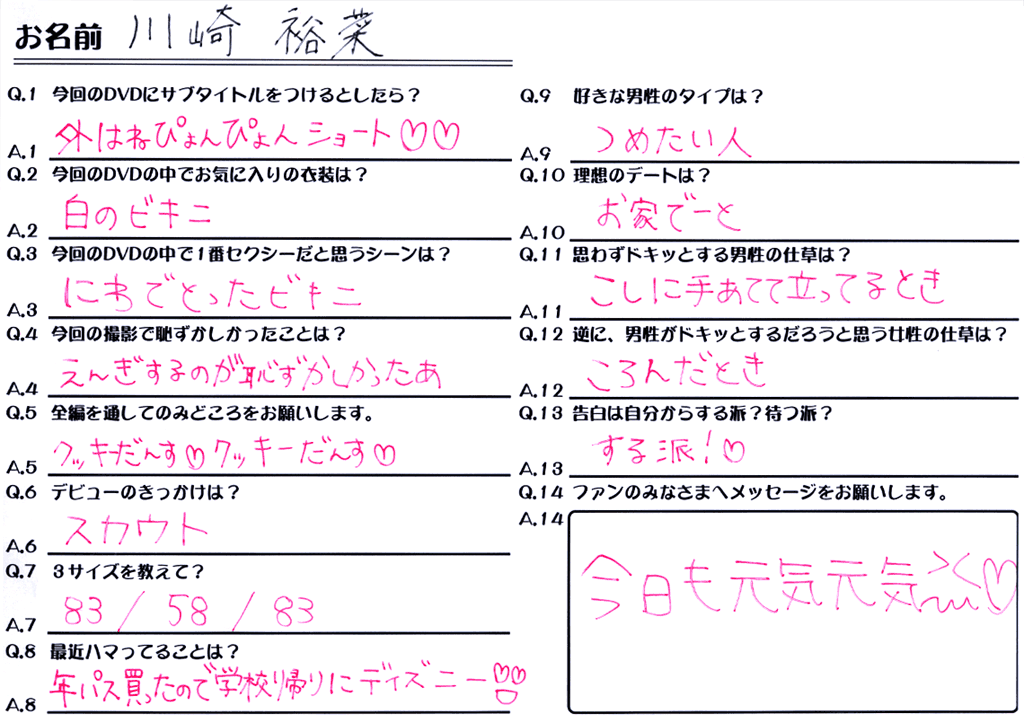 お名前 川崎 裕菜
Q.1 今回のDVDにサブタイトルをつけるとしたら？
A.1 外はねぴょんぴょんショート♡♡
Q.2 今回のDVDの中でお気に入りの衣装は？
A.2 白のビキニ
Q.3 今回のDVDの中で1番セクシーだと思うシーンは？
A.3 にわでとったビキニ
Q.4 今回の撮影で恥ずかしかったことは？
A.4 えんぎするのが恥ずかしかったあ
Q.5 全編を通してのみどころをお願いします。
A.5 クッキーだんす♡クッキーだんす♡
Q.6 デビューのきっかけは？
A.6 スカウト
Q.7 3サイズを教えて？
A.7 83 / 58 / 83
Q.8 最近ハマってることは？
A.8 年パス買ったので学校帰りにディズニー♡♡
Q.9 好きな男性のタイプは？
A.9 つめたい人
Q.10 理想のデートは？
A.10 お家でーと
Q.11 思わずドキッとする男性の仕草は？
A.11 こしに手あてて立ってるとき
Q.12 逆に、男性がドキッとするだろうと思う女性の仕草は？
A.12 ころんだとき
Q.13 告白は自分からする派？待つ派？
A.13 する派！♡
Q.14 ファンのみなさまへメッセージをお願いします。
A.14 今日も元気元気♡